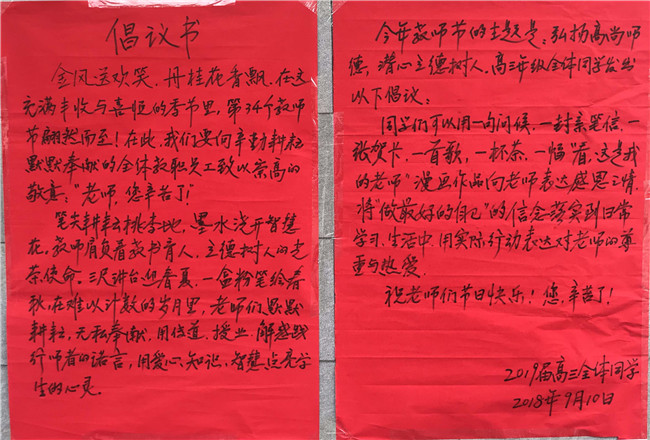 倡议书
金风送欢笑,丹桂花香飘,在这
充满丰收与喜悦的季节里,第34个教师
节翩然而至!在此,我们要向辛勤耕耘
默默奉献的全体教职员工致以崇高的
敬意:"老师,您辛苦了!"
笔尖耕耘桃李地,墨水浇开智慧
花,教师肩负着教书育人,立德树人的光
荣使命,三尺讲台迎春夏,一盒粉笔绘春
秋,在难以计数的岁月里,老师们默默
耕耘,无私奉献,用传道、授业、解惑践
行师者的诺言,用爱心、知识、智慧点亮学
生的心灵。
今年教师节的主题是:弘扬高尚师
德,潜心立德树人。高三年级全体同学发出
以下倡议:
同学们可以用一句问候,一封亲笔信,一
张贺卡,一首歌,一杯茶,一幅"看,这是我
的老师"漫画作品向老师表达感恩之情.
将"做最好的自己"的信念落实到日常
学习、生活中,用实际行动表达对老师的尊
重与热爱.
祝老师们节日快乐!您,辛苦了!
2019届高三全体同学
2018年9月10日